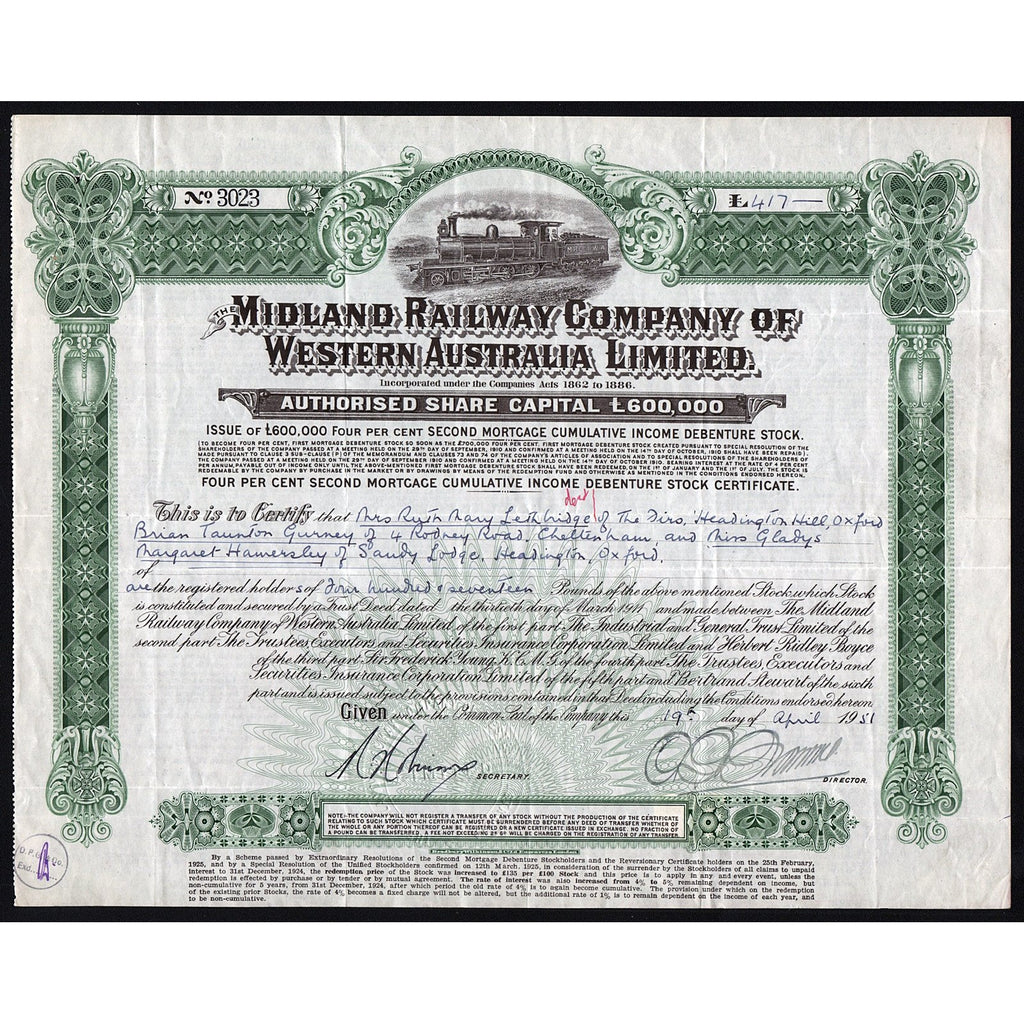 Nº 3023
£417—
THE MIDLAND RAILWAY COMPANY OF
WESTERN AUSTRALIA LIMITED.
Incorporated under the Companies Acts 1862 to 1886.
AUTHORISED SHARE CAPITAL £600,000
ISSUE OF £600,000 FOUR PER CENT SECOND MORTGAGE CUMULATIVE INCOME DEBENTURE STOCK.
(TO BECOME FOUR PER CENT, FIRST MORTGAGE DEBENTURE STOCK SO SOON AS THE £700,000 FOUR PER CENT. FIRST MORTGAGE DEBENTURE STOCK CREATED PURSUANT TO SPECIAL RESOLUTION OF THE
SHAREHOLDERS OF THE COMPANY PASSED AT A MEETING HELD ON THE 29TH DAY OF SEPTEMBER, 1910 AND CONFIRMED AT A MEETING HELD ON THE 14TH DAY OF OCTOBER, 1910 SHALL HAVE BEEN REPAID);
MADE PURSUANT TO CLAUSE 3 SUB-CLAUSE (P) OF THE MEMORANDUM AND CLAUSES 73 AND 74 OF THE COMPANY'S ARTICLES OF ASSOCIATION AND TO SPECIAL RESOLUTIONS OF THE SHAREHOLDERS OF
THE COMPANY PASSED AT A MEETING HELD ON THE 29TH DAY OF SEPTEMBER 1910 AND CONFIRMED AT A MEETING HELD ON THE 14TH DAY OF OCTOBER 1910. BEARING INTEREST AT THE RATE OF 4 PER CENT
PER ANNUM, PAYABLE OUT OF INCOME ONLY UNTIL THE ABOVE-MENTIONED FIRST MORTGAGE DEBENTURE STOCK SHALL HAVE BEEN REDEEMED, ON THE 1ST OF JANUARY AND THE 1ST OF JULY. THE STOCK IS
REDEEMABLE BY THE COMPANY BY PURCHASE IN THE MARKET OR BY DRAWINGS BY MEANS OF THE REDEMPTION FUND AND OTHERWISE AS MENTIONED IN THE CONDITIONS ENDORSED HEREON.
FOUR PER CENT SECOND MORTGAGE CUMULATIVE INCOME DEBENTURE STOCK CERTIFICATE.
decd
This is to Certify that Mrs Ruth Mary Lethbridge of The Firs, Headington Hill, Oxford
Brian Taunton Gurney of 4 Rodney Road, Cheltenham, and Miss Gladys
Margaret Hamersley of Sandy Lodge, Headington, Oxford.
of
are the registered holders of Four hundred & seventeen Pounds of the above mentioned Stock which Stock
is constituted and secured by a Trust Deed dated the thirtieth day of March 1911 and made between The Midland
Railway Company of Western Australia Limited of the first part The Industrial and General Trust Limited of the
second part The Trustees, Executors and Securities Insurance Corporation Limited and Herbert Ridley Boyce
of the third part Sir Frederick Young K.C.M.G. of the fourth part The Trustees, Executors and
Securities Insurance Corporation Limited of the fifth part and Bertrand Stewart of the sixth
part and is issued subject to the provisions contained in that Deed including the Conditions endorsed hereon.
Given under the Common Seal of the Company this 19th day of April 1951
SECRETARY.
DIRECTOR.
NOTE:-THE COMPANY WILL NOT REGISTER A TRANSFER OF ANY STOCK WITHOUT THE PRODUCTION OF THE CERTIFICATE
RELATING TO SUCH STOCK WHICH CERTIFICATE MUST BE SURRENDERED BEFORE ANY DEED OF TRANSFER WHETHER OF
THE WHOLE OR ANY PORTION THEREOF CAN BE REGISTERED OR A NEW CERTIFICATE ISSUED IN EXCHANGE. NO FRACTION OF
A POUND CAN BE TRANSFERRED. A FEE NOT EXCEEDING 2/6 WILL BE CHARGED ON THE REGISTRATION OF ANY TRANSFER
By a Scheme passed by Extraordinary Resolutions of the Second Mortgage Debenture Stockholders and the Reversionary Certificate holders on the 25th February,
1925, and by a Special Resolution of the Unified Stockholders confirmed on 12th March, 1925, in consideration of the surrender by the Stockholders of all claims to unpaid
interest to 31st December, 1924, the redemption price of the Stock was increased to £135 per £100 Stock and this price is to apply in any and every event, unless the
redemption is effected by purchase or by tender or by mutual agreement. The rate of interest was also increased from 4% to 5%, remaining dependent on income, but
non-cumulative for 5 years, from 31st December, 1924, after which period the old rate of 4% is to again become cumulative. The provision under which on the redemption
of the existing prior Stocks, the rate of 4% becomes a fixed charge will not be altered, but the additional rate of 1% is to remain dependent on the income of each year, and
to be non-cumulative.